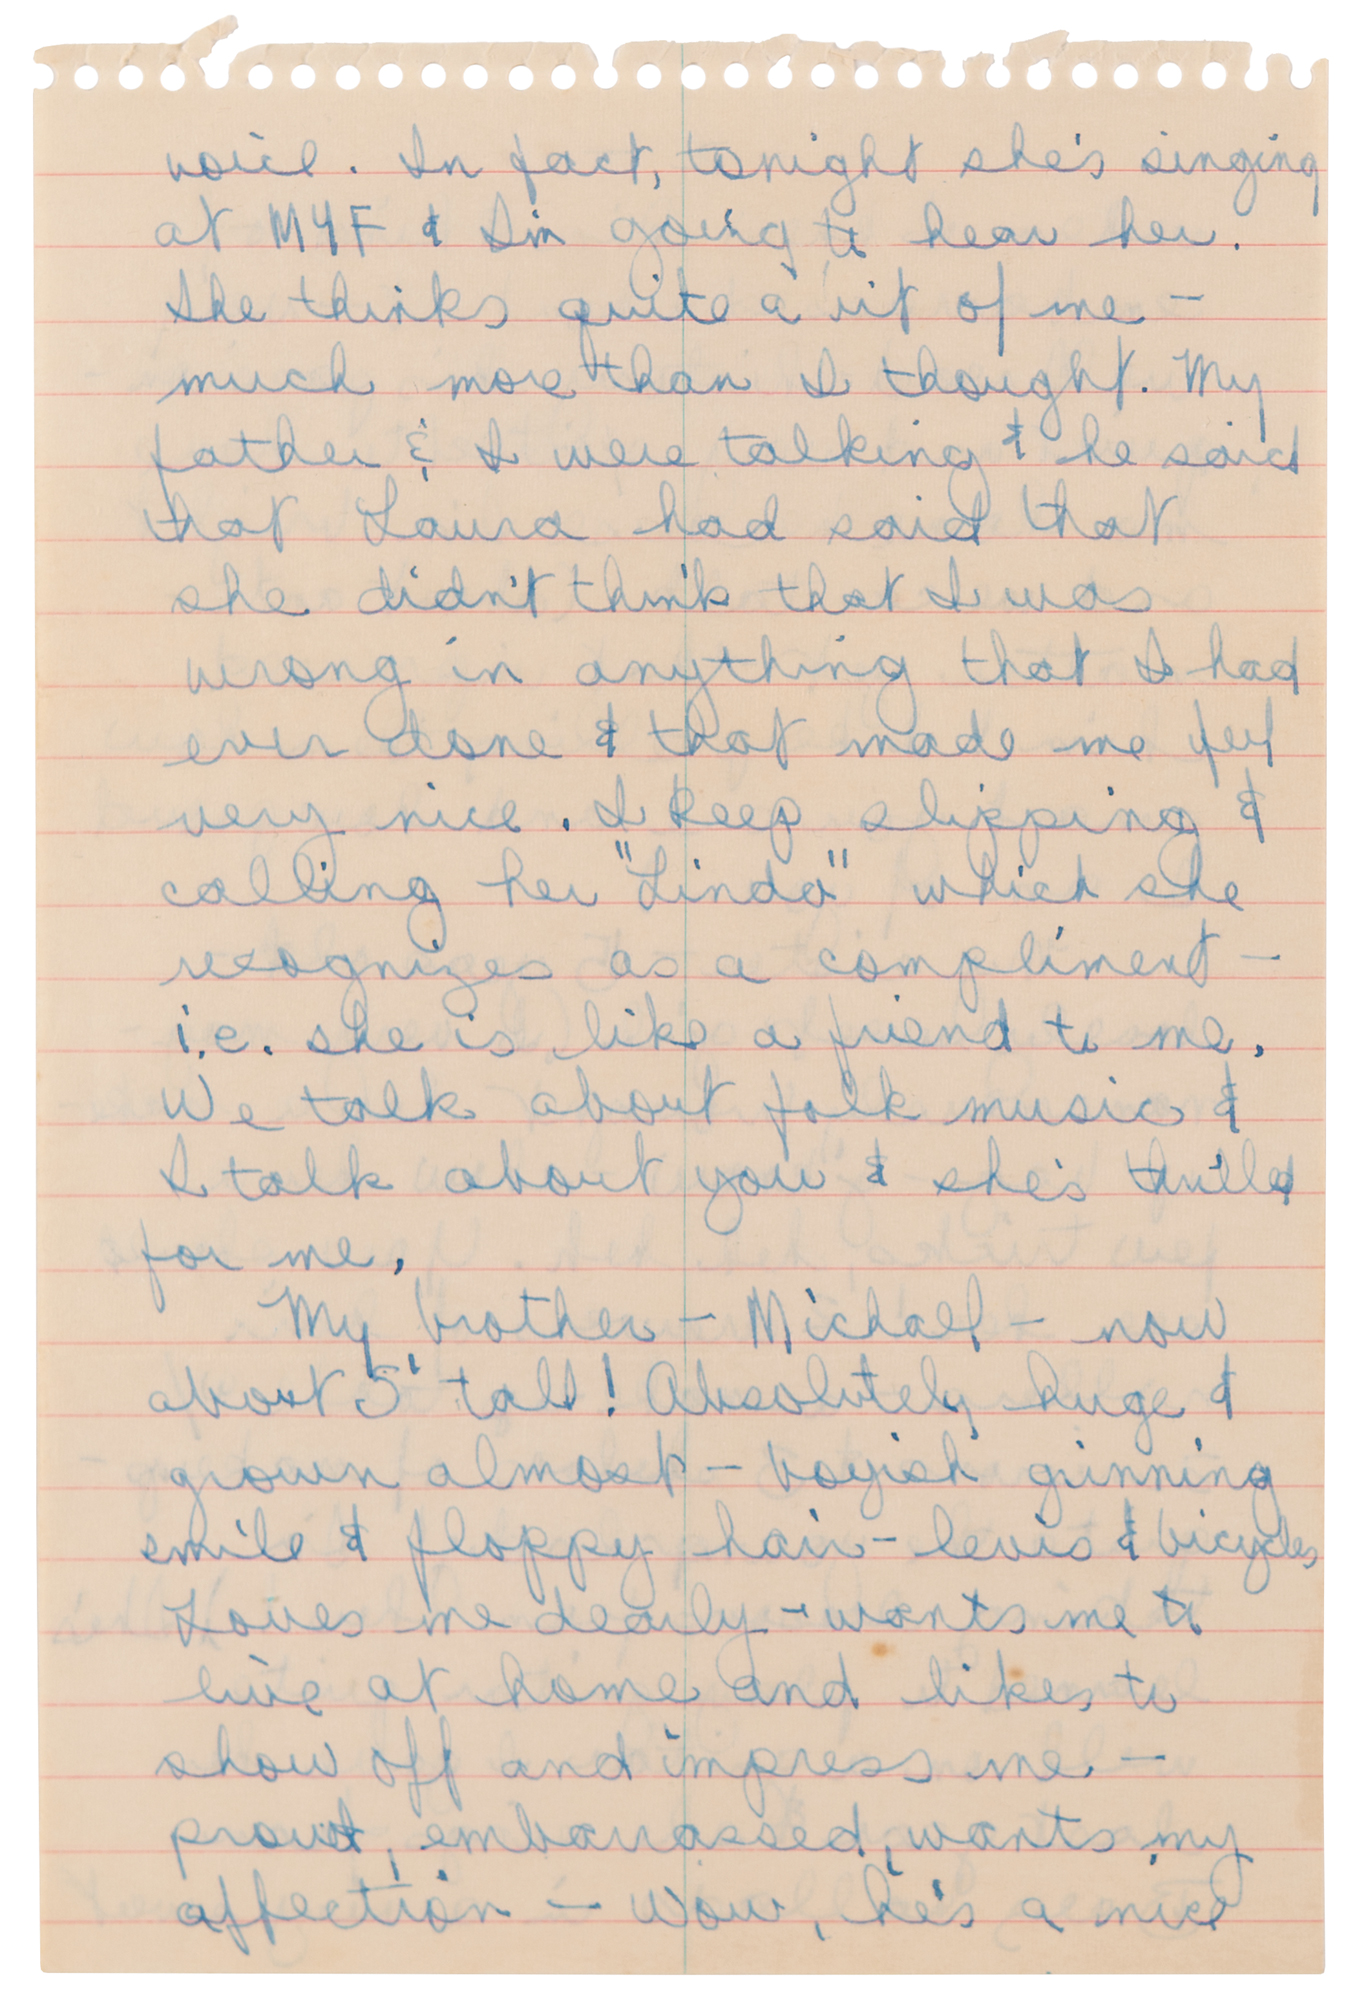 voice. In fact, tonight she's singing
at MYF & I'm going to hear her.
She thinks quite a bit of me –
much more than I thought. My
father & I were talking & he said
that Laura had said that
she didn't think that I was
wrong in anything that I had
ever done & that made me feel
very nice. I keep slipping &
calling her "Linda" which she
recognizes as a compliment –
i.e. she is like a friend to me.
We talk about folk music &
I talk about you & she's thrilled
for me.
My brother – Michael – now
about 5' tall! Absolutely huge &
grown almost – boyish grinning
smile & floppy hair – levis & bicycles
Loves me dearly – wants me to
live at home and likes to
show off and impress me –
proud, embarrassed, wants my
affection – Wow, he's a nice